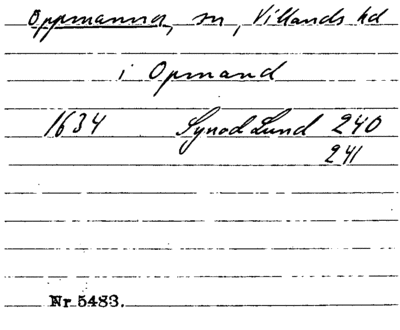 Oppmanna, sn, Villands hd
i Opmand
1634 Synod Lund 240
241
Nr 5483.